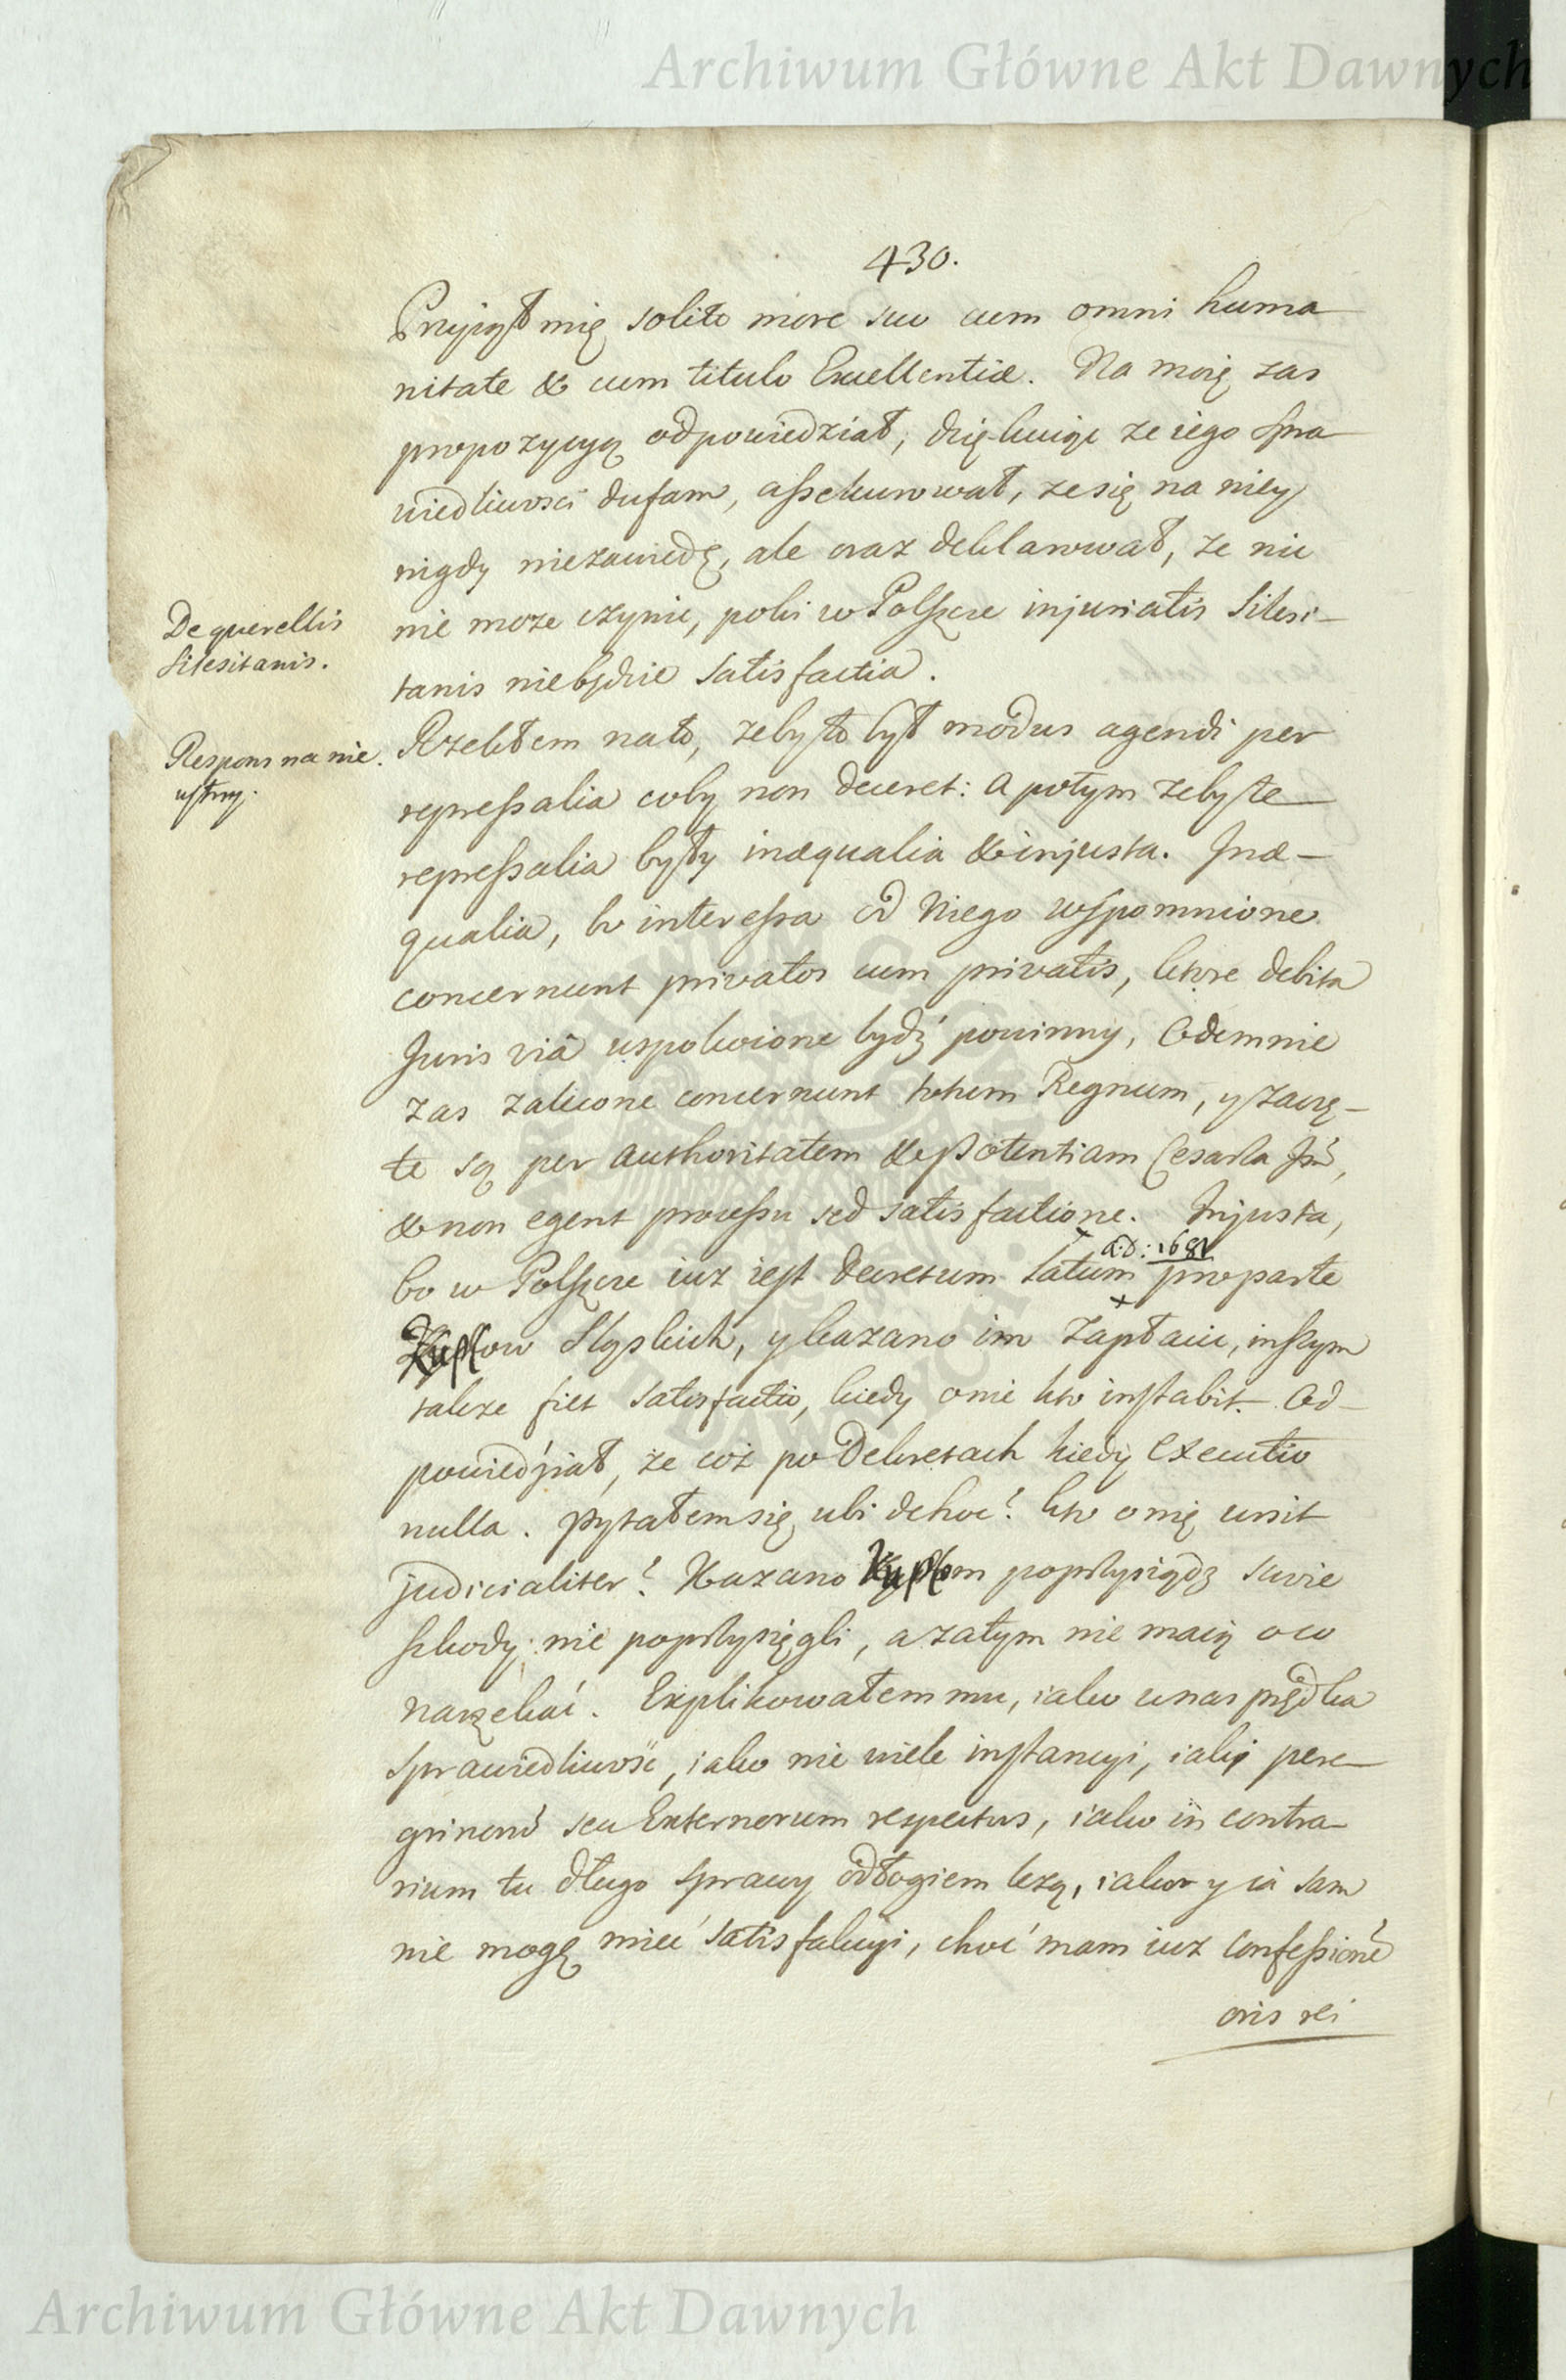 Archiwum Główne Akt Dawnych
430.
Przyjął mię solito more suo cum omni huma
nitate & cum titulo Excellentiæ. Na moię zas
propozycyą odpowiedział, dziękuiąc ze iego spra
wiedliwosci dufam, assekurował, ze się na niey
nigdy niezawiodę, ale oraz deklarował, ze nic
nie moze czynic, poki w Polszcze injuriatis Silesi-
De querellis
Silesitanis.
tanis niebędzie satisfactia.
Respons na nie
ustny.
Rzekłem nato, zeby to był modus agendi per
repressalia coby non deceret: a potym zeby te
repressalia były inæqualia & injusta. Inæ-
qualia, bo interessa od Niego wspomnione
concernunt privatos cum privatis, ktore debita
Juris viâ uspokoione bydź powinny, Odemnie
zas zalecone concernunt totum Regnum, y zaczę-
te są per authoritatem & potentiam Cesarza Jm̃,
& non egent processu sed satisfactione. Injusta,
bo w Polszcze iuz iest decretum latum a.d: 1681 pro parte
Kupcow Sląskich, y kazano im zapłacic, inszym
takze fiet satisfactio, kiedy onie kto instabit. Od-
powiedźiał, że coż po Dekretach kiedy Executio
nulla. Pytałem się, ubi dehoc? kto o nię ursit
judicialiter? Kazano Kupcom poprzysiądz swoie
szkody: nie poprzysięgli, a zatym nie maią o co
narzekać. Explikowałem mu, iako u nas prędka
sprawiedliwość, iako nie wiele instancyi, iaki pere-
grinorũ seu Externorum respectus, iako in contra-
rium tu długo sprawy odłogiem lezą, iako y ia sam
nie mogę mieć satisfakcyi, choć mam iuz confessionẽ
oris rei
Archiwum Główne Akt Dawnych